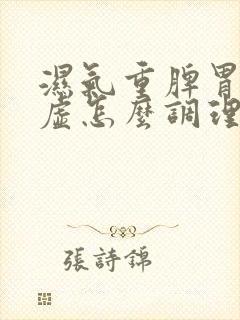 濕氣重脾胃
虛怎麼調理
張詩錦